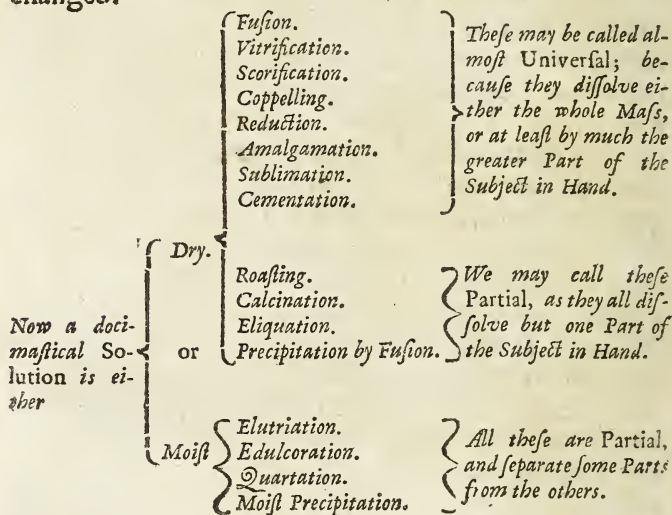 changed.
Fuſion.
Vitrification.
Scorification.
Coppelling.
Reduction.
Amalgamation.
Sublimation.
Cementation.
Theſe may be called al-
moſt Univerſal; be-
cauſe they diſſolve ei-
ther the whole Maſs,
or at leaſt by much the
greater Part of the
Subject in Hand.
Now a doci-
maſtical So-
lution is ei-
ther
Dry.
or
Roaſting.
Calcination.
Eliquation.
Precipitation by Fuſion.
We may call theſe
Partial, as they all diſ-
ſolve but one Part of
the Subject in Hand.
Moiſt
Elutriation.
Edulcoration.
Quartation.
Moiſt Precipitation.
All theſe are Partial,
and ſeparate ſome Parts
from the others.